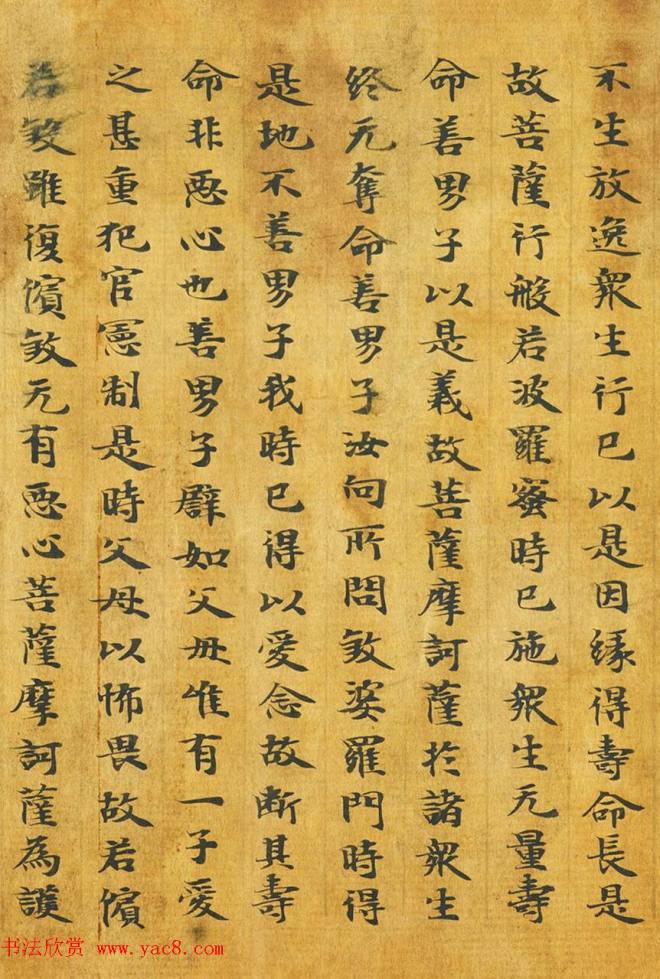 不生放逸衆生行已以是因緣得壽命長是
故菩薩行般若波羅蜜時已施衆生无量壽
命善男子以是義故菩薩摩訶薩於諸衆生
終无奪命善男子汝向所問煞婆羅門時得
是地不善男子我時已得以愛念故断其壽
命非惡心也善男子譬如父母唯有一子愛
之甚重犯官憲制是時父母以怖畏故若儐
若煞雖復儐煞无有惡心菩薩摩訶薩為護
书法欣赏 www.yac8.com